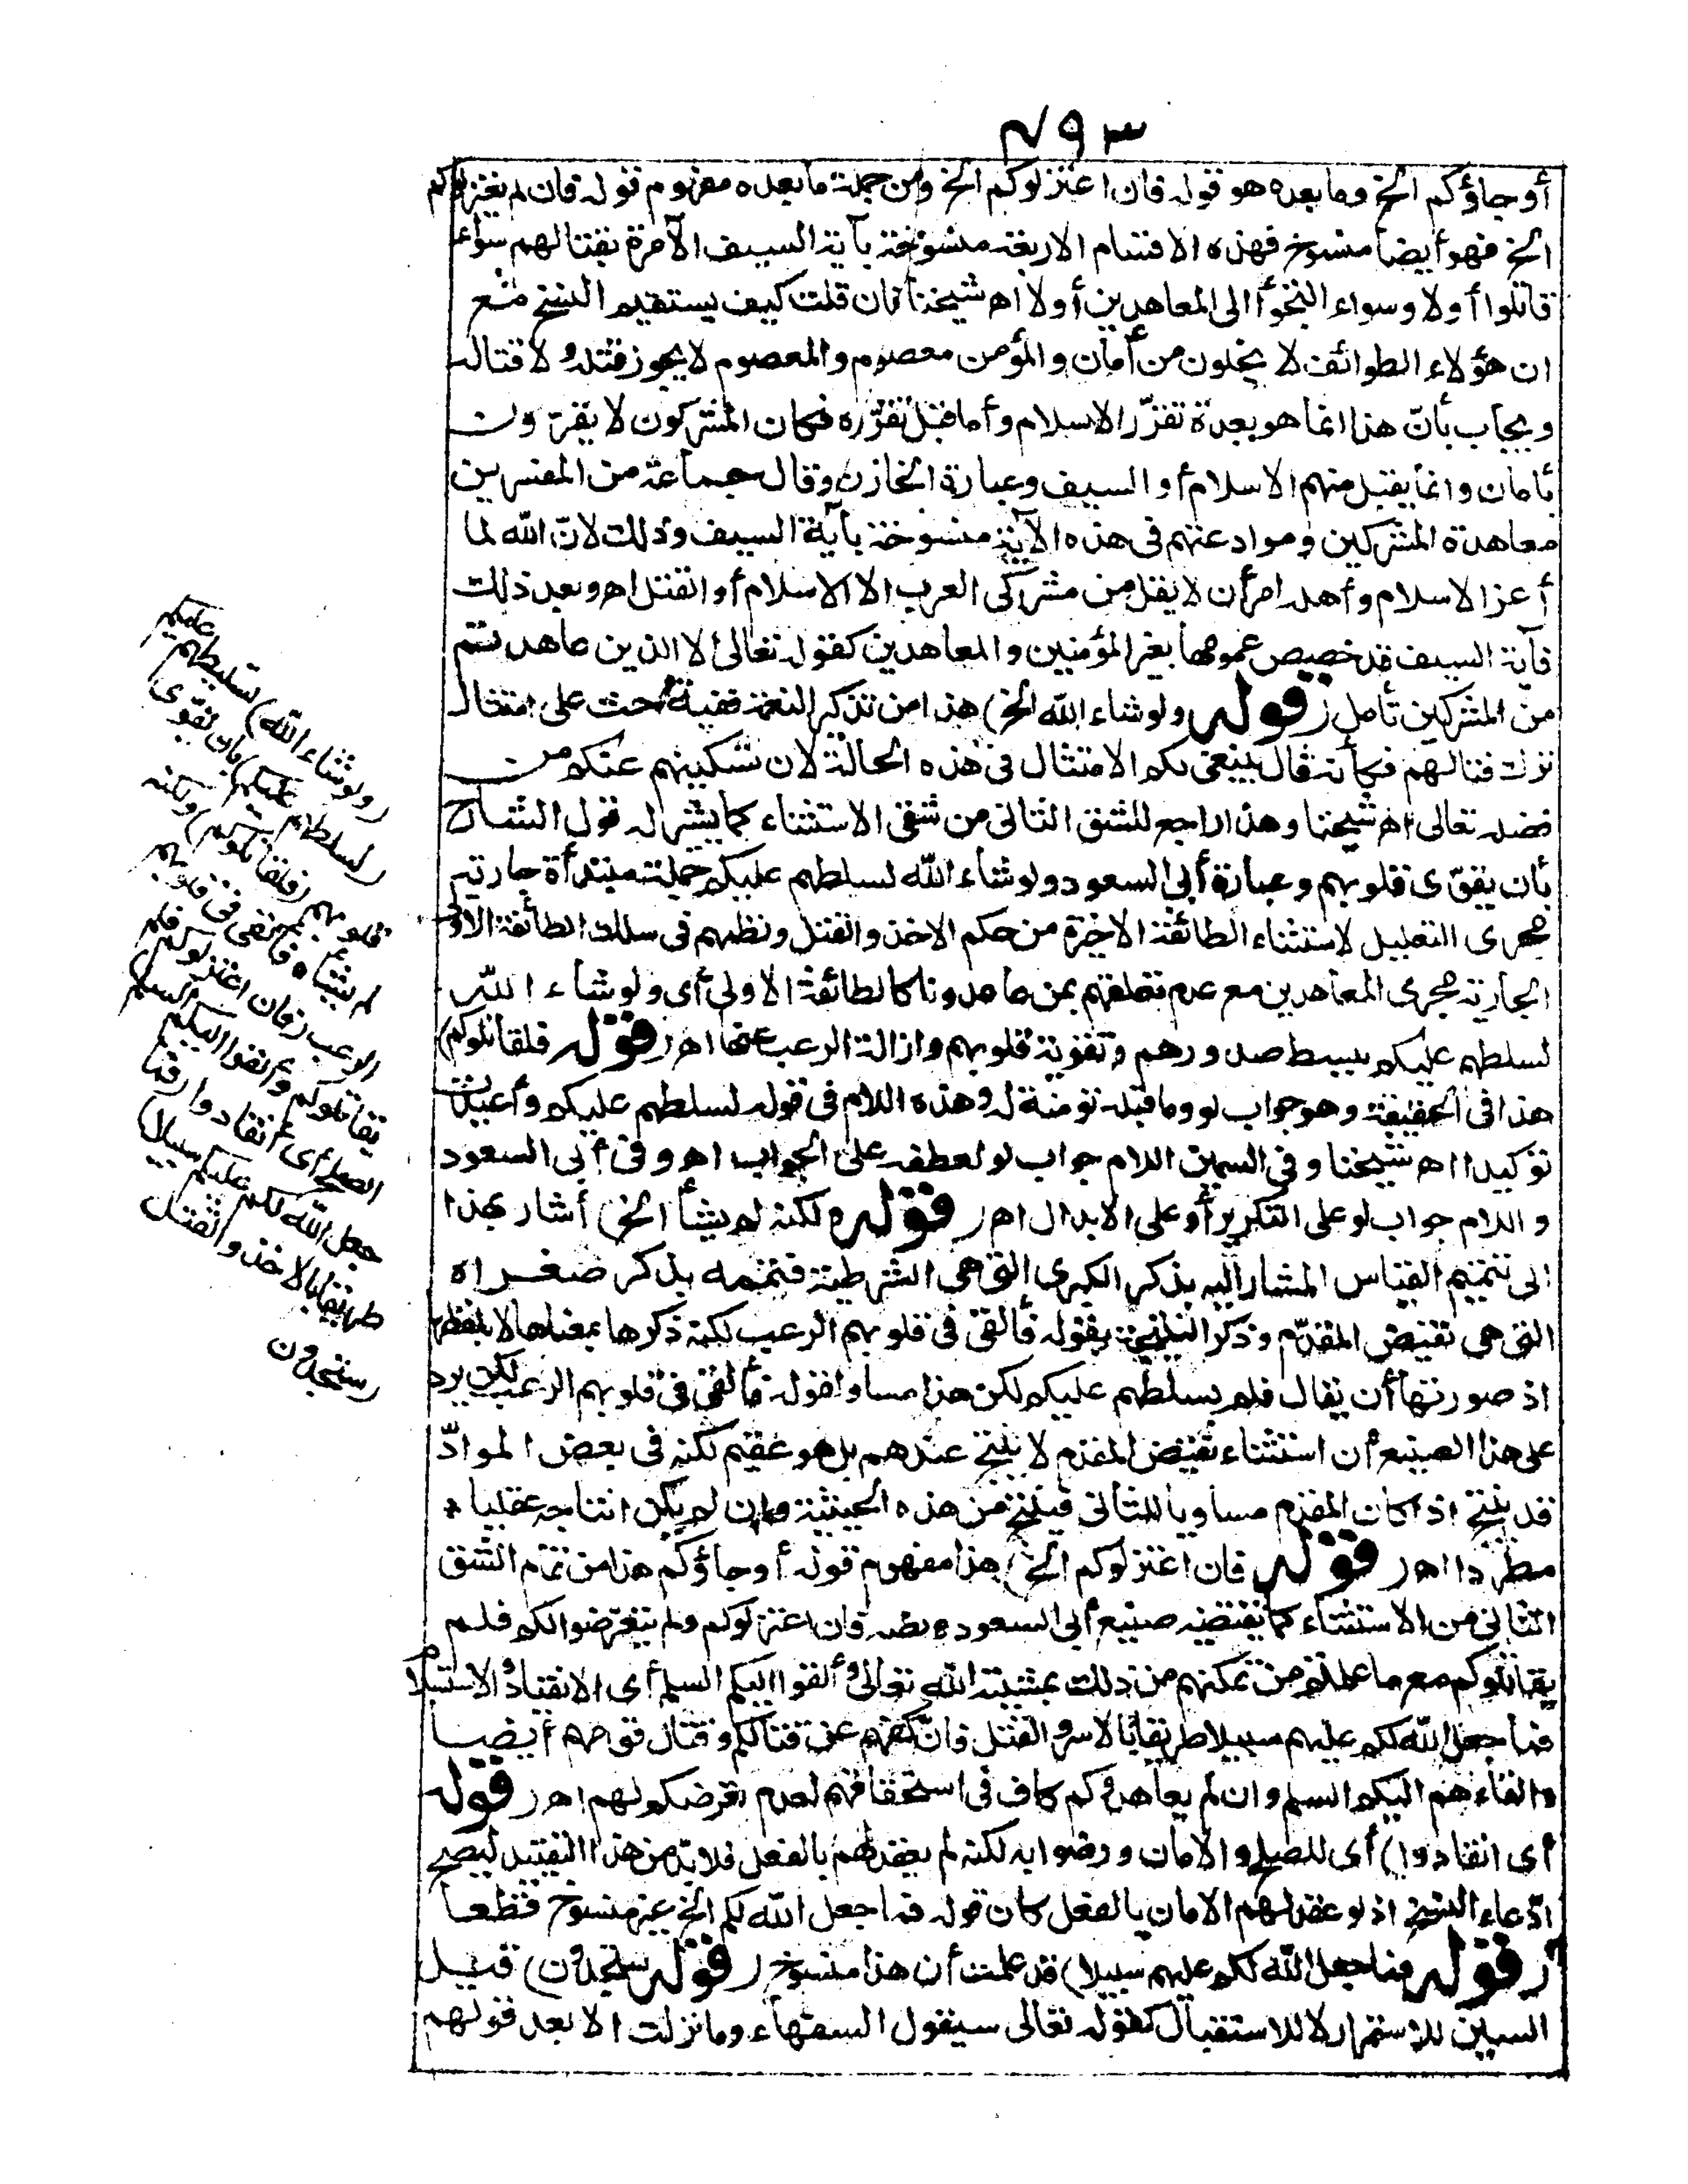 ٧٩٣
أو جاؤكم الخ وما بعده هو قوله فان اعتزلوكم الخ ومن جملة ما بعده مفهوم قوله فان لم يعتزلوكم
الخ فهو أيضا منسوخ فهذه الاقسام الاربعة منسوخة بآية السيف الآمرة بقتالهم سواء
قاتلوا أولا وسواء التجؤا الى المعاهدين أولا اه شيخنا فان قلت كيف يستقيم النسخ مع
ان هؤلاء الطوائف لا يخلون من أمان والمؤمن معصوم والمعصوم لا يجوز قتله ولا قتاله
ويجاب بأنّ هذا انما هو بعدة تقرّر الاسلام وأما قبل تقرّره فكان المشركون لا يقرّون
بأمان وانما يقبل منهم الاسلام أو السيف وعبارة الخازن وقال جماعة من المفسرين
معاهدة المشركين وموادعتهم فى هذه الآية منسوخة بآية السيف وذلك لانّ الله لما
أعز الاسلام وأهله امر أن لا يقبل من مشركى العرب الا الاسلام أو القتل اه وبعد ذلك
فآية السيف قد خصيص عمومها بغير المؤمنين والمعاهدين كقوله تعالى الا الذين عاهدتم
من المشركين تأمل (قوله ولو شاء الله الخ) هذا من تذكير النعمة ففيه حث على امتثال
ترك قتالهم فكأنه قال ينبغى لكم الامتثال فى هذه الحالة لان تسكينهم عنكم من
فضله تعالى اه شيخنا وهذا راجع للشق الثانى من شقى الاستثناء كما يشير له قول الشارح
بأن يقوّى قلوبهم وعبارة أبى السعود ولو شاء الله لسلطهم عليكم جملة مبتدأة جارية
مجرى التعليل لاستثناء الطائفة الاخيرة من حكم الاخذ والقتل ونظمهم فى سلك الطائفة الاولى
الجارية مجرى المعاهدين مع عدم تعلقهم بمن عاهدونا كالطائفة الاولى أى ولو شاء الله
لسلطهم عليكم ببسط صدورهم وتقوية قلوبهم وازالة الرعب عنها اه (قوله فلقاتلوكم)
هذا فى الحقيقة وهو جواب لو وما قبله توطئة له وهذه اللام فى قوله لسلطهم عليكم وأعيدت
توكيدا اه شيخنا وفى السمين اللام جواب لو لعطفه على الجواب اه وفى أبى السعود
واللام جواب لو على التكرير أو على الابدال اه (قوله ولكنه لم يشأ الخ) أشار بهذا
الى تتميم القياس المشار اليه بذكر الكبرى التى هى الشرطية فتممه بذكر صغراه
التى هى نقيض المقدّم وذكر النتيجة بقوله فألقى فى قلوبهم الرعب لكنه ذكرها بمعناها لا بلفظها
اذ صورتها أن يقال فلم يسلطهم عليكم لكن هذا مساو لقوله فألقى فى قلوبهم الرعب لكن يرد
على هذا الصنيع أن استثناء نقيض المقدم لا ينتج عندهم بل هو عقيم لكنه فى بعض الموادّ
قد ينتج اذا كان المقدم مساويا للتالى فينتج من هذه الحيثية وان لم يكن انتاجه عقليا *
مطردا اه (قوله فان اعتزلوكم الخ) هذا مفهوم قوله أو جاؤكم هذا من تمام الشق
الثانى من الاستثناء كما يقتضيه صنيع أبى السعود ونصه فان اعتزلوكم ولم يتعرّضوا لكم فلم
يقاتلوكم مع ما علمتم من تمكنهم من ذلك بمشيئة الله تعالى وألقوا اليكم السلم أى الانقياد والاستسلام
فما جعل الله لكم عليهم سبيلا طريقا بالاسر والقتل فانّ كفهم عن قتالكم وقتال قومهم أيضا
والقاءهم اليكم السلم وان لم يعاهدوكم كاف فى استحقاقهم لعدم تعرضكم لهم اه (قوله
أى انقادوا) أى للصلح والامان ورضوا به لكنه لم يعقد لهم بالفعل فلا بدّ من هذا التقييد ليصح
ادّعاء النسخ اذ لو عقد لهم الامان بالفعل كان قوله فما جعل الله لكم الخ غير منسوخ قطعا
(قوله فما جعل الله لكم عليهم سبيلا) قد علمت أن هذا منسوخ (قوله ستجدون) قيل
السين للاستمرار لا للاستقبال كقوله تعالى سيقول السفهاء وما نزلت الا بعد قولهم
(ولو شاء الله) تسليطهم عليكم
(لسلطهم عليكم) بأن يقوّى
قلوبهم (فلقاتلوكم) ولكنه
لم يشأه فألقى فى قلوبهم
الرعب (فان اعتزلوكم فلم
يقاتلوكم وألقوا اليكم السلم)
الصلح أى انقادوا (فما
جعل الله لكم عليهم سبيلا)
طريقا بالاخذ والقتل
(ستجدون